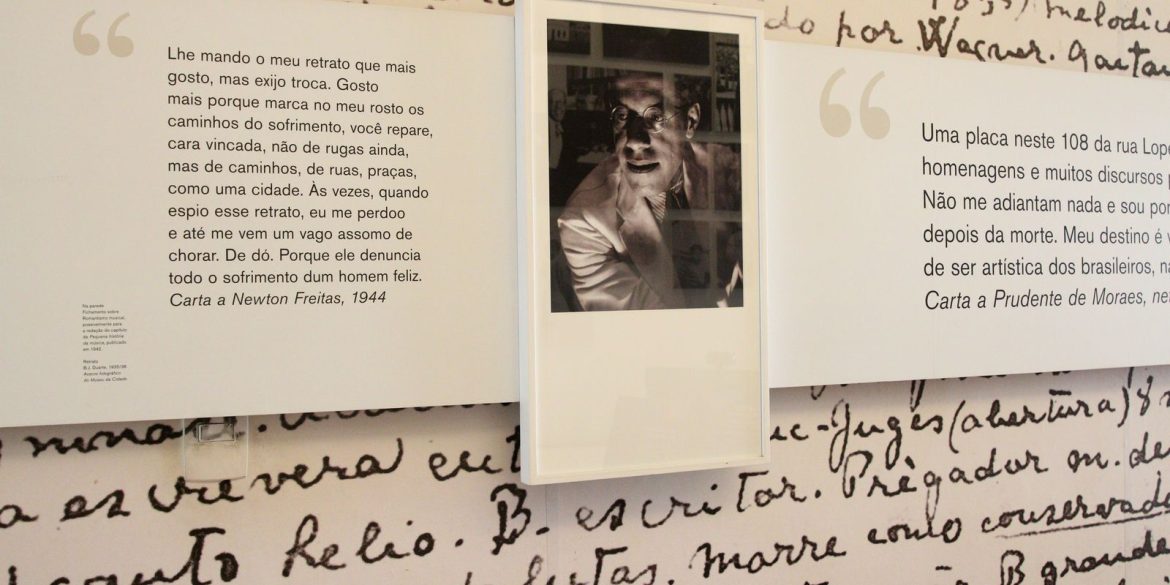 do por Wagner. Gaetan
melodico
Lhe mando o meu retrato que mais
gosto, mas exijo troca. Gosto
mais porque marca no meu rosto os
caminhos do sofrimento, você repare,
cara vincada, não de rugas ainda,
mas de caminhos, de ruas, praças,
como uma cidade. Às vezes, quando
espio esse retrato, eu me perdoo
e até me vem um vago assomo de
chorar. De dó. Porque ele denuncia
todo o sofrimento dum homem feliz.
Carta a Newton Freitas, 1944
Na parede
Fichamento sobre
Romantismo musical,
possivelmente para
a redação do capítulo
de Pequena história
da música, publicado
em 1942.
Retrato
B.J. Duarte, 1935/36
Acervo fotográfico
do Museu da Cidade
Uma placa neste 108 da rua Lope
homenagens e muitos discursos
Não me adiantam nada e sou por
depois da morte. Meu destino é v
de ser artística dos brasileiros, na
Carta a Prudente de Moraes, net
uc-Jugès (abertura) 8
escrevera
B. escritor. Prègador m. de
helio.
marre como conservado
B grande